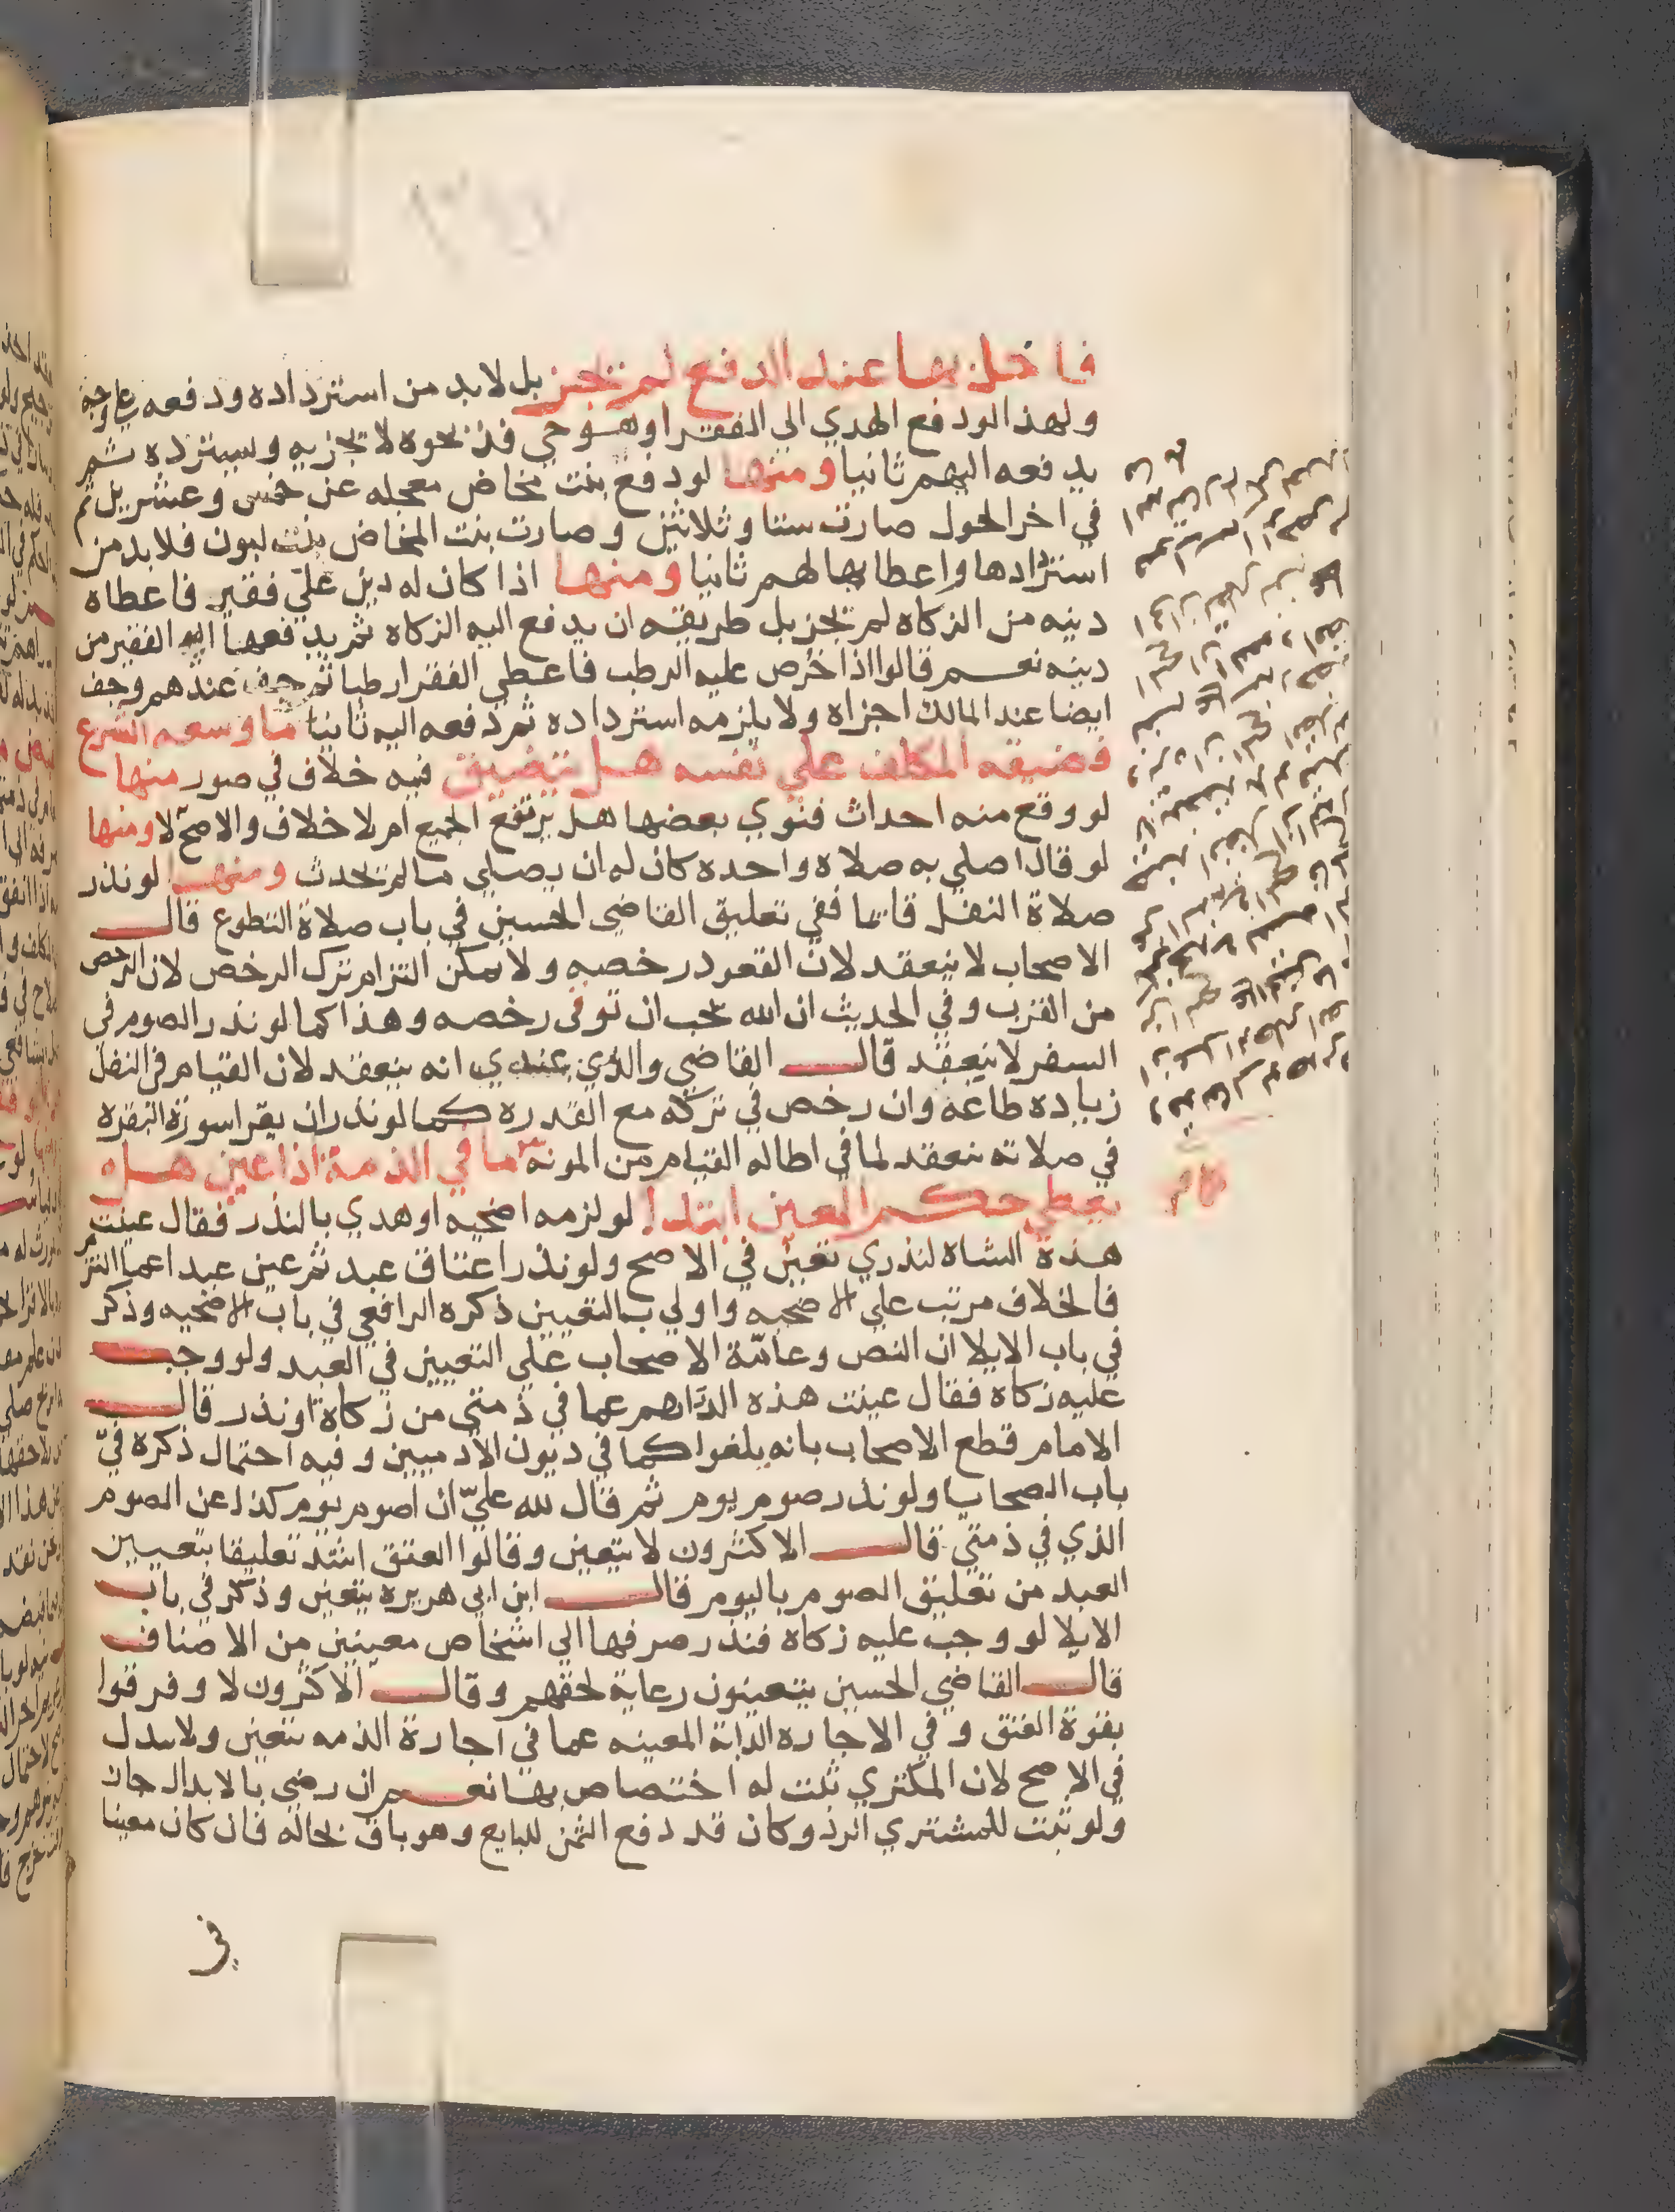 فاخل بها عند الدفع لم تجز بل لابد من استرداده ودفعه علي وجهه
ولهذا لو دفع الهدي الي الفقرا وهو حي فذبحوه لا تجزيه ويسترده ثم
يدفعه اليهم ثانيا ومنها لو دفع بنت مخاض معجله عن خمس وعشرين ثم
في اخر الحول صارت ستا وثلاثين وصارت بنت المخاض بنت لبون فلابد من
استردادها واعطايها لهم ثانيا ومنها اذا كان له دين علي فقير فاعطاه
دينه من الزكاه لم تجز بل طريقه ان يدفع اليه الزكاه ثم يدفعها اليه الفقير من
دينه نعم قالوا اذا خرص عليه الرطب فاعطي الفقرا رطبا ثم جف عندهم وجف
ايضا عند المالك اجزاه ولا يلزمه استرداده ثم دفعه اليه ثانيا ما وسعه الشرع
فضيقه المكلف علي نفسه هل يتضيق فيه خلاف في صور منها
لو وقع منه احداث فنوي بعضها هل يرتفع الجميع ام لا خلاف والاصح لا ومنها
لو قال اصلي به صلاه واحده كان له ان يصلي ما لم يحدث ومنها لو نذر
صلاة النفل قائما ففي تعليق القاضي الحسين في باب صلاة التطوع قال
الاصحاب لا ينعقد لان القعود رخصه ولا يمكن التزام ترك الرخص لان الرخص
من القرب وفي الحديث ان الله يحب ان توتى رخصه وهذا كما لو نذر الصوم في
السفر لا ينعقد قال القاضي والذي عندي انه ينعقد لان القيام في النفل
زياده طاعة وان رخص في تركه مع القدره كما لو نذر ان يقرا سورة البقره
في صلاته ينعقد لما في اطاله القيام من المونه ما في الذمة اذا عين هل
يعطي حكم المعين ابتدا لو لزمه اضحيه او هدي بالنذر فقال عينت
هذه الشاه لنذري تعين في الاصح ولو نذر اعتاق عبد ثم عين عبدا عما التزم
فالخلاف مرتب علي الاضحيه واولي بالتعيين ذكره الرافعي في باب الاضحيه وذكر
في باب الايلا ان النص وعامّة الاصحاب علي التعيين في العبد ولو وجب
عليه زكاه فقال عينت هذه الدراهم عما في ذمتي من زكاة او نذر قال
الامام قطع الاصحاب بانه يلغوا كما في ديون الادميين وفيه احتمال ذكره في
باب الضحايا ولو نذر صوم يوم ثم قال لله عليّ ان اصوم يوم كذا عن الصوم
الذي في ذمتي قال الاكثرون لا يتعين وقالوا العتق اشد تعليقا بتعيين
العبد من تعليق الصوم باليوم قال ابن ابي هريره يتعين وذكر في باب
الايلا لو وجب عليه زكاه فنذر صرفها الي اشخاص معينين من الاصناف
قال القاضي الحسين يتعينون رعاية لحقهم وقال الاكثرون لا وفرقوا
بقوة العتق وفي الاجاره الدابة المعينه عما في اجارة الذمه تتعين ولا تبدل
في الاصح لان المكتري ثبت له اختصاص بها نعم ان رضي بالابدال جاز
ولو ثبت للمشتري الرد وكان قد دفع الثمن للبايع وهو باق بحاله فان كان معينا
في